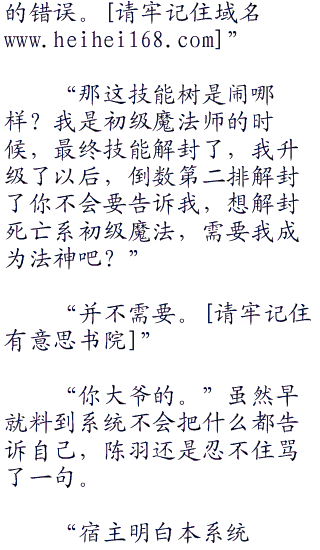 的错误。[请牢记住域名
www.heihei168.com]”
“那这技能树是闹哪
样？我是初级魔法师的时
候，最终技能解封了，我升
级了以后，倒数第二排解封
了你不会要告诉我，想解封
死亡系初级魔法，需要我成
为法神吧？”
“并不需要。[请牢记住
有意思书院]”
“你大爷的。”虽然早
就料到系统不会把什么都告
诉自己，陈羽还是忍不住骂
了一句。
“宿主明白本系统